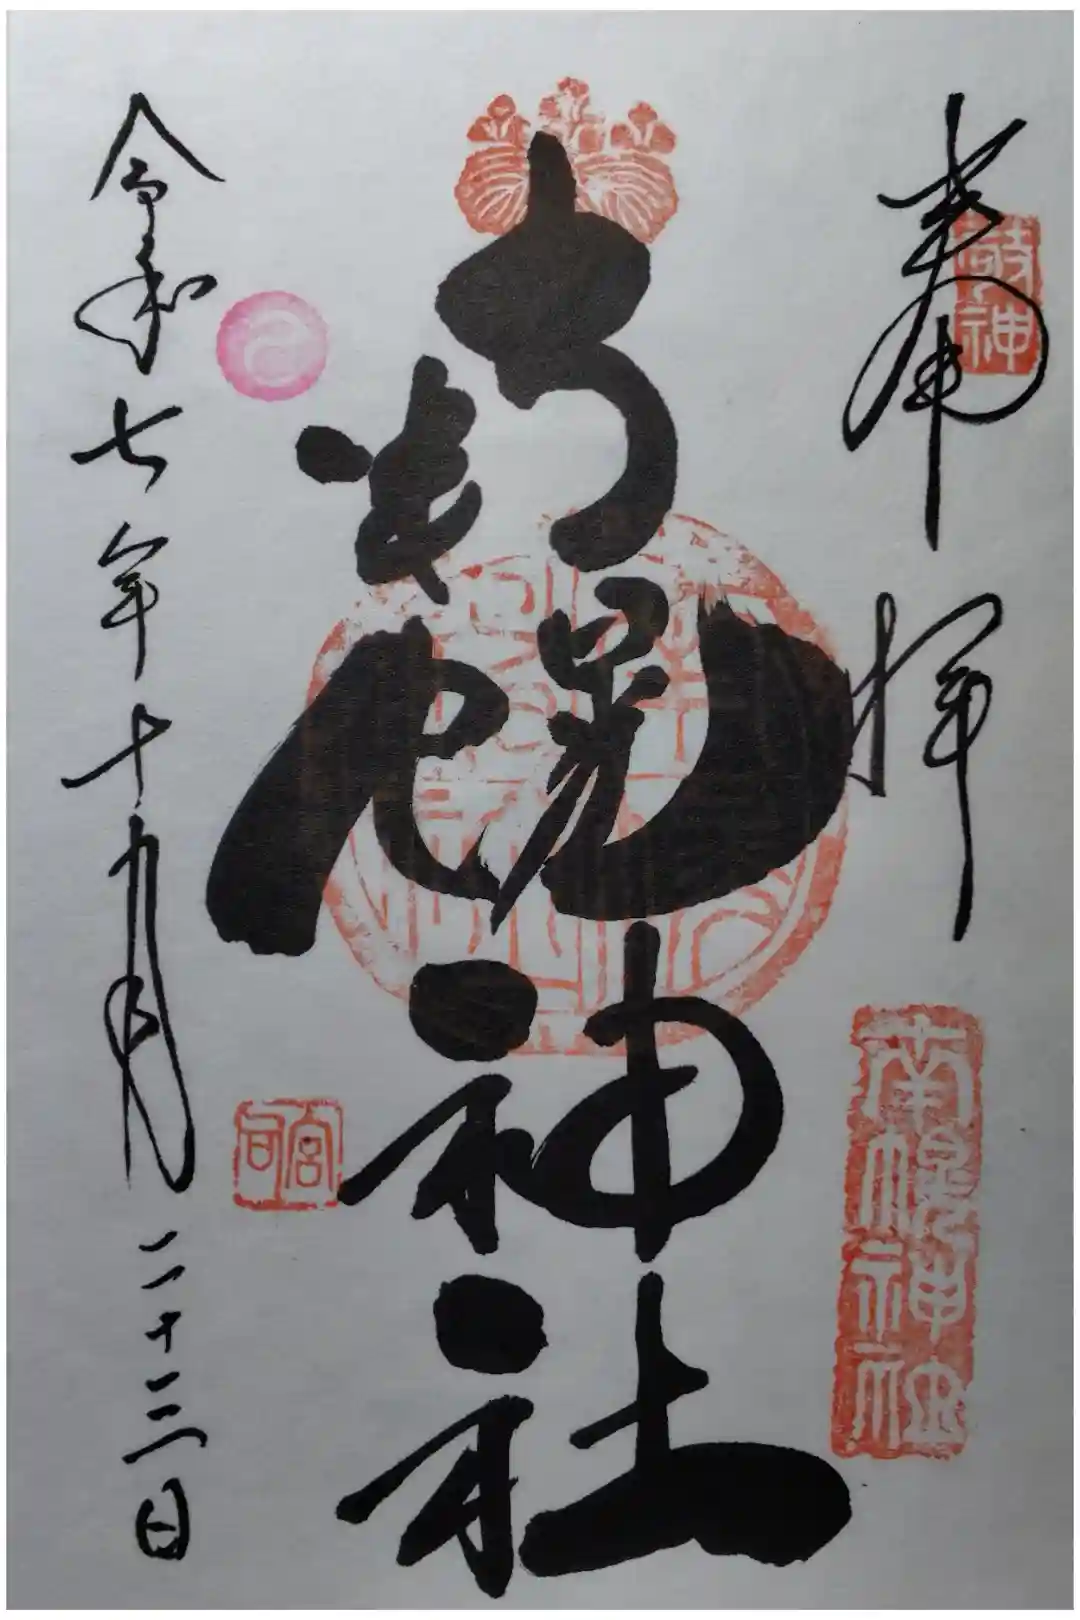 奉拝
敬神
南幌神社
南幌神社
宮司
令和七年十一月二十三日